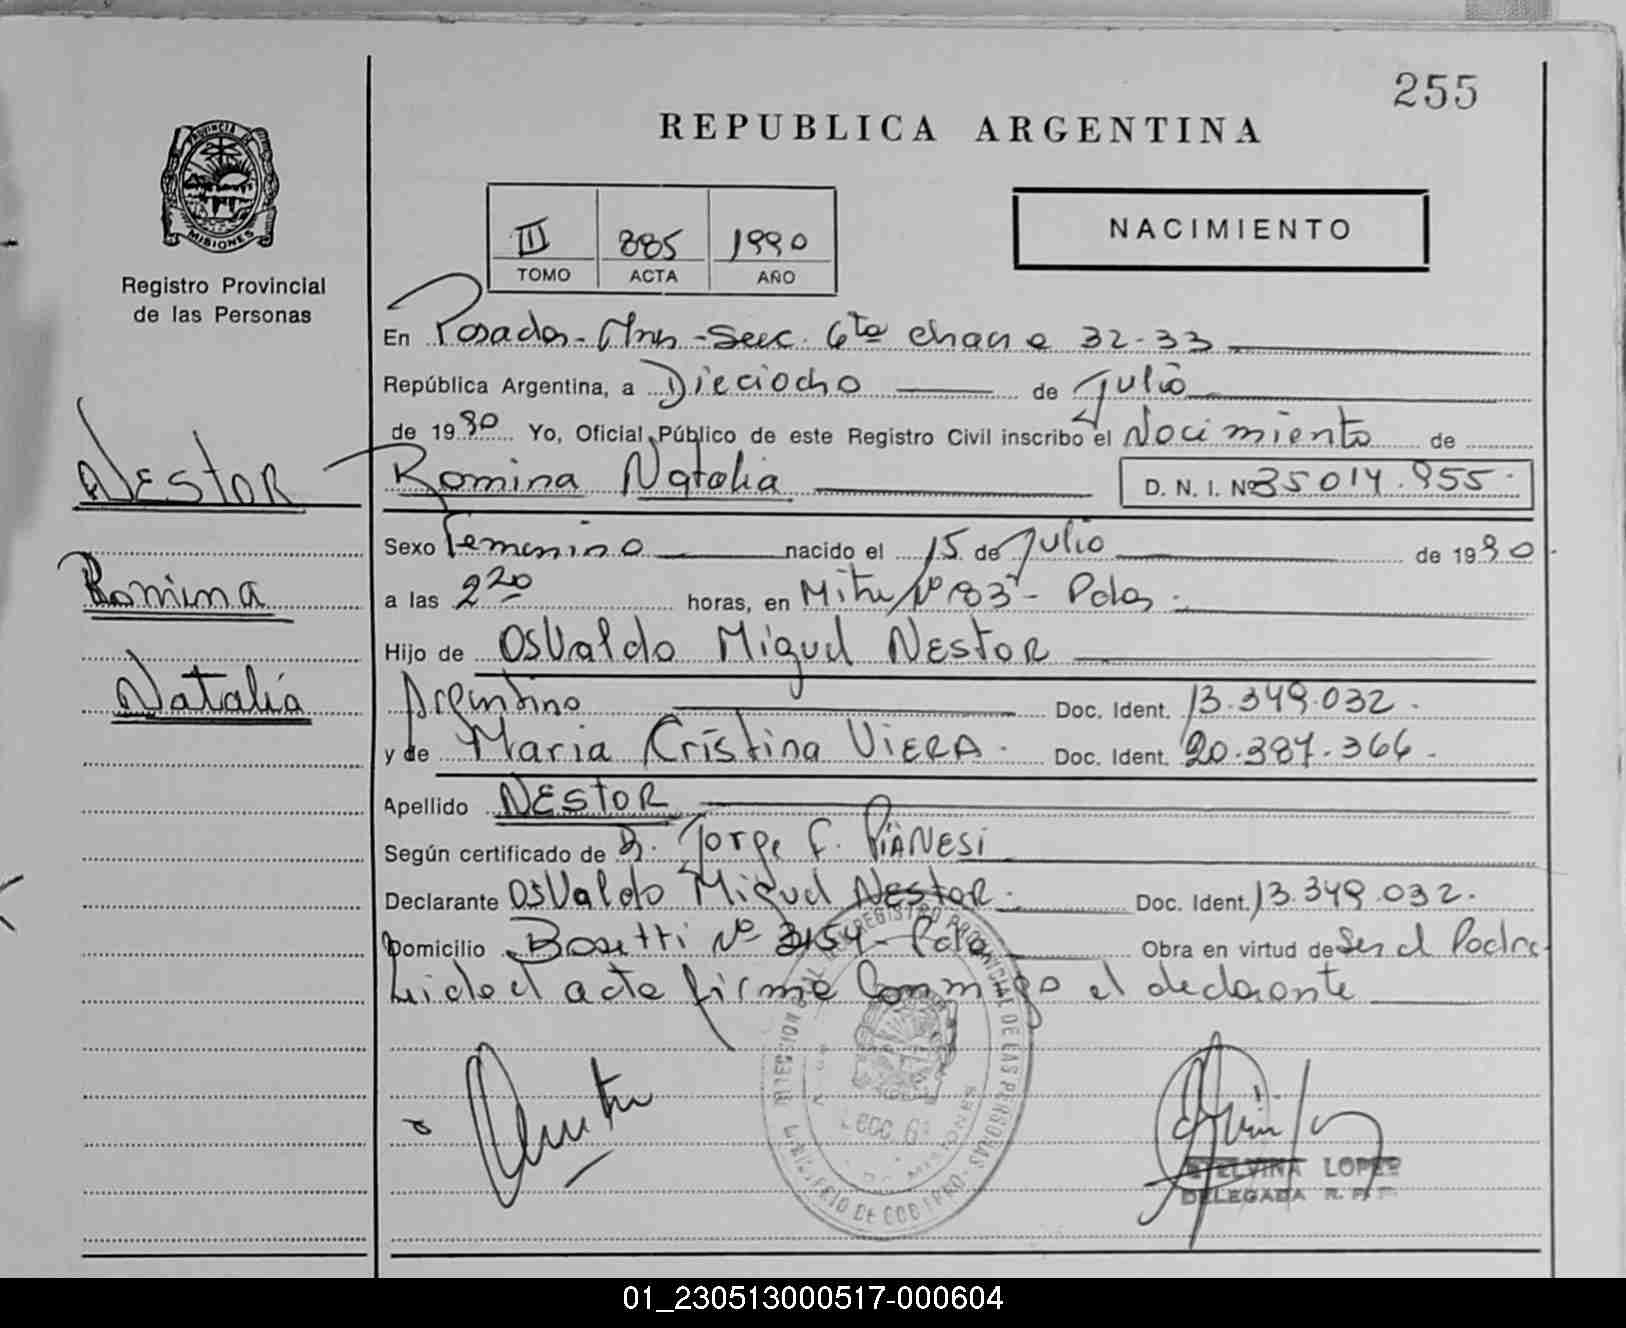 255
REPUBLICA ARGENTINA
PROVINCIA DE MISIONES
Registro Provincial
de las Personas
III 885 1990
TOMO ACTA AÑO
NACIMIENTO
En Posadas - Mnes - Secc. 6ta chacra 32-33
República Argentina, a Dieciocho de Julio
de 1990 Yo, Oficial Público de este Registro Civil inscribo el Nacimiento de
Romina Natalia D. N. I. Nº 35014.955
Sexo Femenino nacido el 15 de Julio de 1990
a las 2 20 horas, en Mitre Nº - Pdas.
Hijo de Osvaldo Miguel NESTOR
Argentino Doc. Ident. 13.349.032.
y de Maria Cristina VIERA. Doc. Ident. 20.387.366.
Apellido NESTOR
Según certificado de Dr. Jorge F. PIANESI
Declarante Osvaldo Miguel Nestor. Doc. Ident. 13.349.032.
Domicilio Bosetti Nº 3154 - Pdas Obra en virtud de Ser el Padre
Leido el acta firma Conmigo el declarante
NESTOR
Romina
Natalia
REGISTRO PROVINCIAL DE LAS PERSONAS
MISIONES
ETELVINA LOPEZ
DELEGADA R. P. P.
01_230513000517-000604